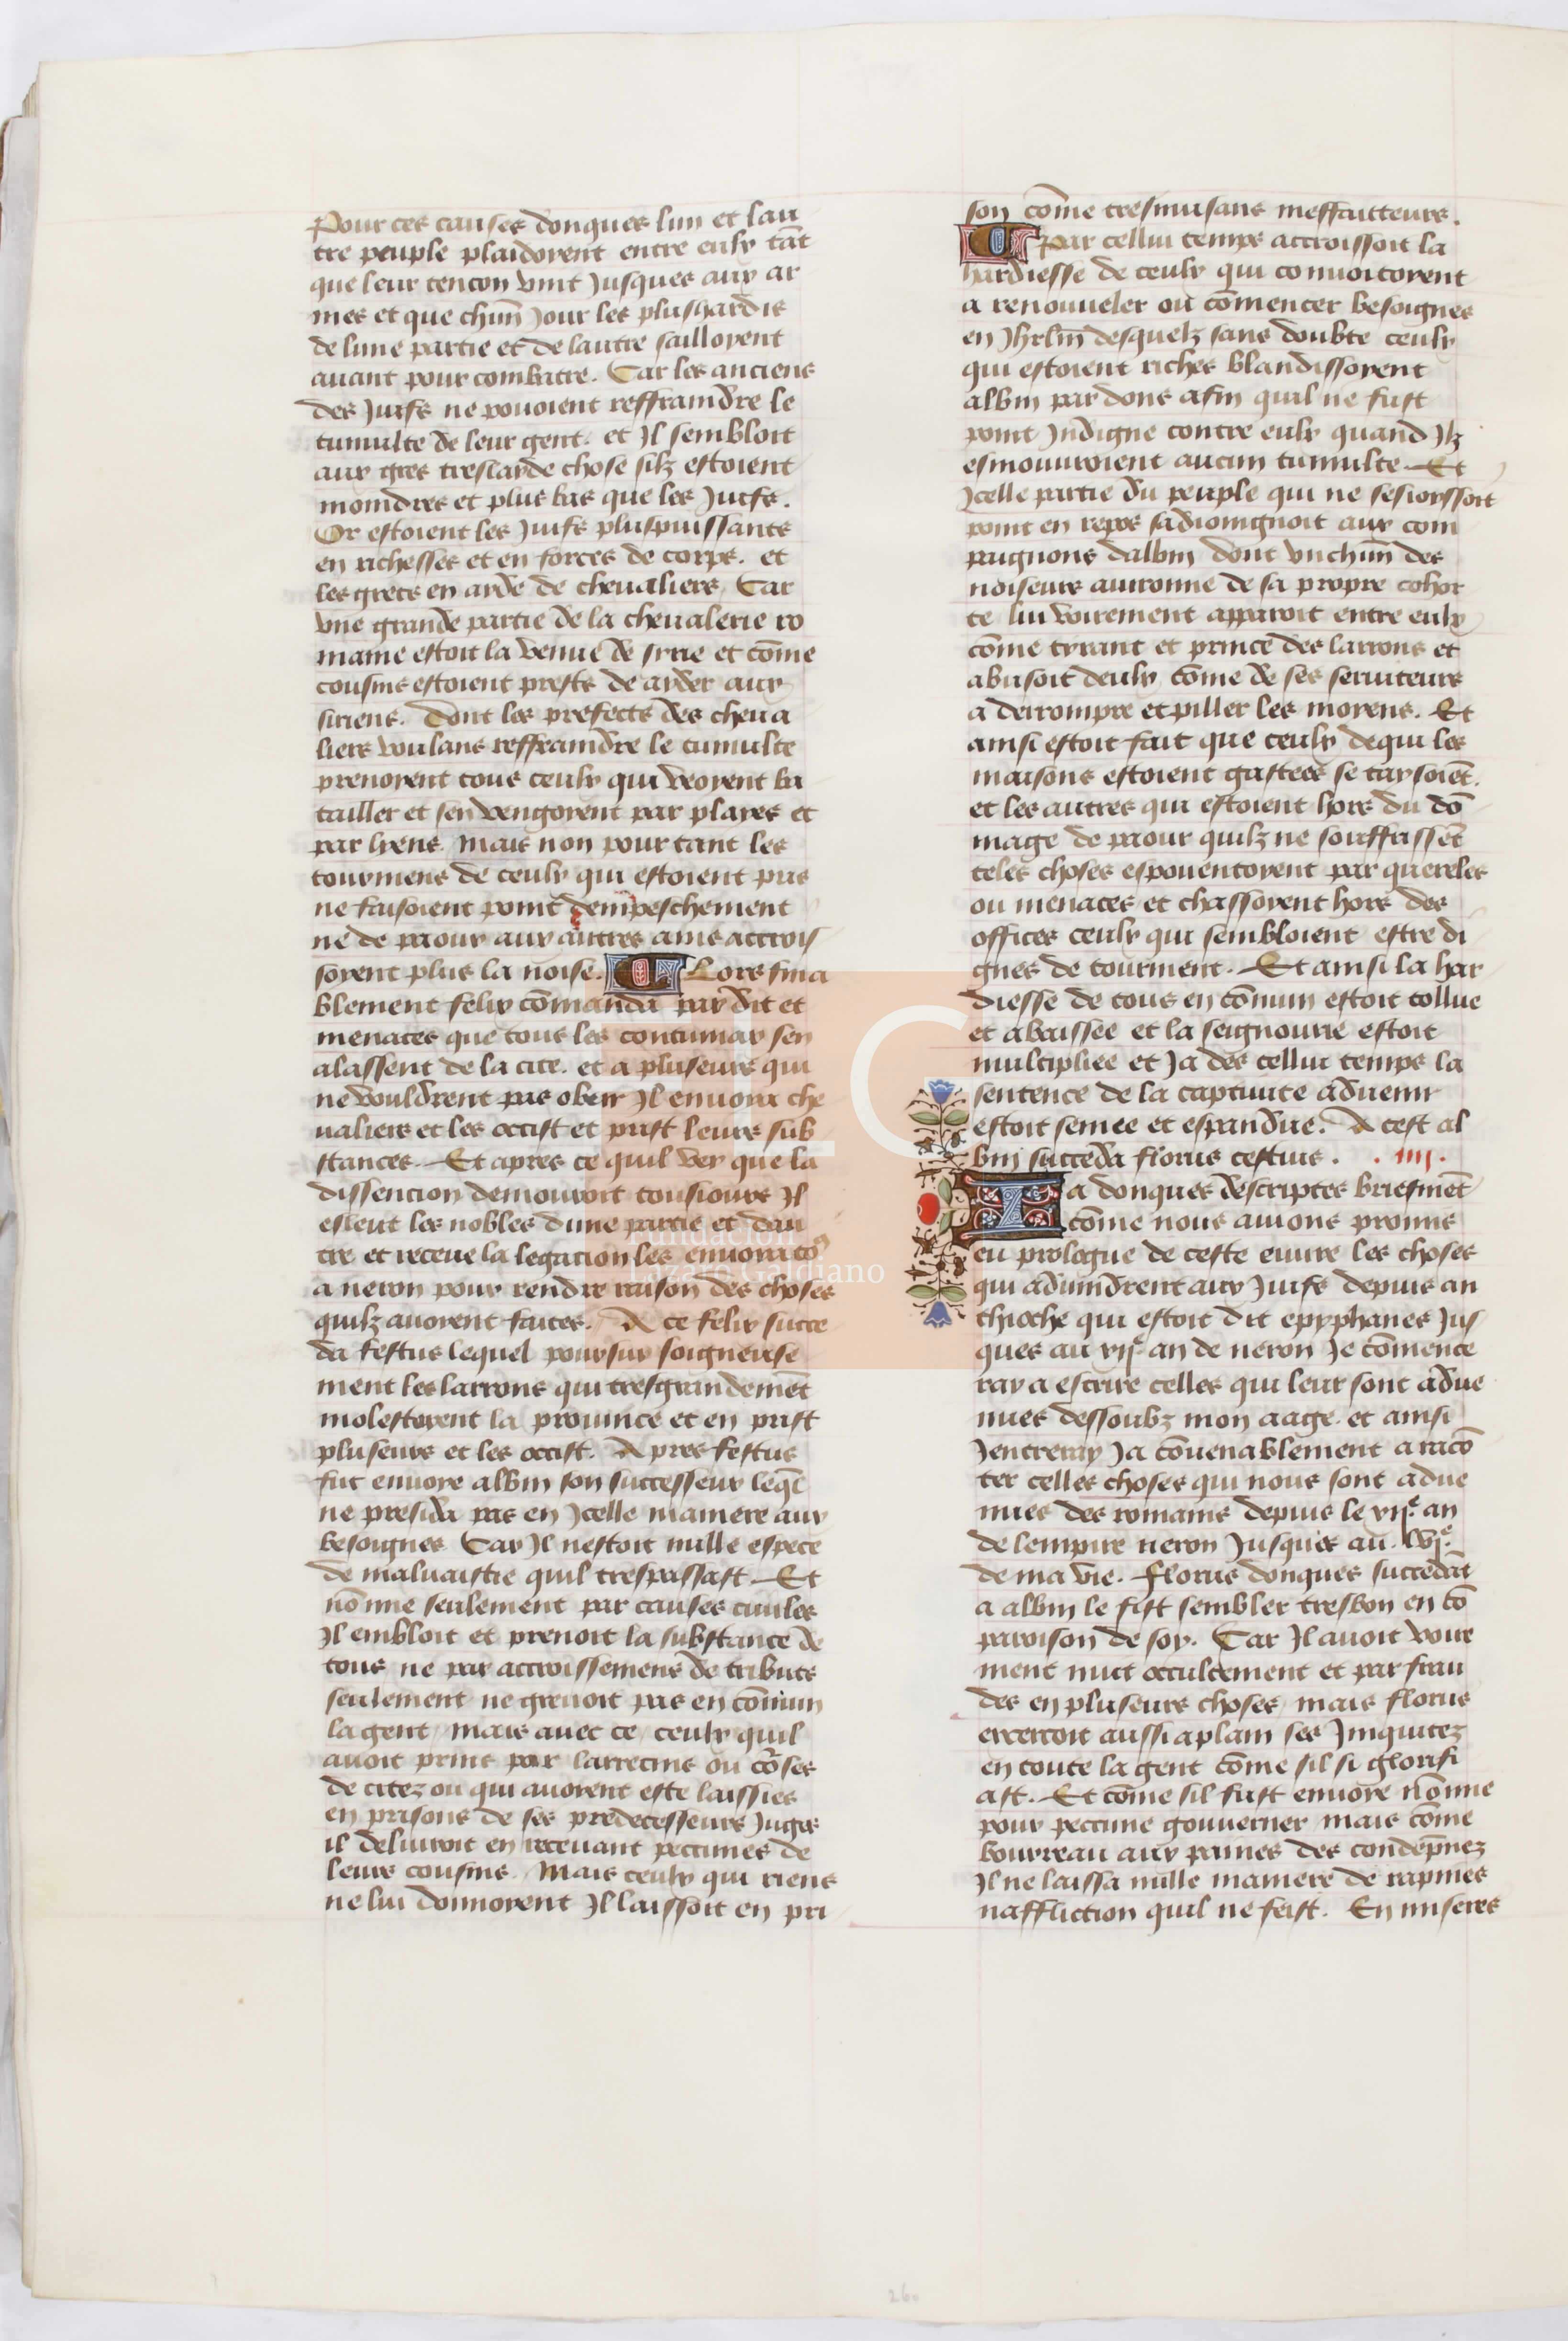 Pour ces causes donques lun et lau
tre peuple plaidoyent entre eulx tāt
que leur tencon vint jusques aux ar
mes et que chūn jour les plushardis
de lune partie et de lautre sailloyent
auant pour combatre. Car les anciens
des juifs ne pouoient reffraindre le
tumulte de leur gent. et Il sembloit
aux gres treslaide chose silz estoient
moindres et plus bas que les juifs.
Or estoient les Juifs pluspuissants
en richesses et en forces de corps. et
les grecs en ayde de cheualiers. Car
vne grande partie de la cheualerie ro
maine estoit la venue de syrie et cōme
cousins estoient prests de ayder aux
siriens. Dont les prefects des cheua
liers voulans reffraindre le tumulte
prenoyent tous ceulx qui veoyent ba
tailler et sen vengoyent par playes et
par lyens. Mais non pour tant les
tourmens de ceulx qui estoient pris
ne faisoient point dempeschement
ne de paour aux autres ains accrois
soyent plus la noise. Lors fina
blement felix cōmanda par dit et
menaces que tous les contumax sen
alassent de la cite. et a pluseurs qui
ne vouldrent pas obeir Il enuoia che
ualiers et les occist et prist leurs sub
stances. Et apres ce quil vey que la
dissention demouroit tousiours Il
esleut les nobles dune partie et dau
tre et receue la legacion les enuoia to9
a neron pour rendre raison des choses
quilz auoyent faites. A ce felix succe
da festus lequel poursuy soigneuse
ment les larrons qui tresgrandemēt
molestoyent la prouince et en prist
pluseurs et les occist. Apres festus
fut enuoye albin son successeur leql̄
ne presida pas en Jcelle maniere aux
besoignes. Car Il nestoit nulle espece
de maluaistie quil trespassast. Et
nō mie seulement par causes ciuiles
Il embloit et prenoit la substance de
tous ne par accroissemens de tributs
seulement ne greuoit pas en cōmun
la gent. mais auec ce ceulx quil
auoit prins par larrecins ou cōrses
de citez ou qui auoyent este laissies
en prisons de ses predecesseurs Juges
il deliuroit en receuant peccunes de
leurs cousins. Mais ceulx qui riens
ne lui donnoyent Il laissoit en pri
son cōme tresnuisans meffaitteurs.
Par cellui temps accroissoit la
hardiesse de ceulx qui conuoitoyent
a renouueler ou cōmencer besoignes
en Jhrlm̄ desquelz sans doubte ceulx
qui estoient riches blandissoyent
albin par dons afin quil ne fust
point Jndigne contre eulx quand Ilz
esmouuroient aucun tumulte. Et
Jcelle partie du peuple qui ne sesioyssoit
point en repos sadioingnoit aux com
paignons dalbin dont vnchūn des
noiseurs auironne de sa propre cohor
te lui voirement apparoit entre eulx
cōme tyrant et prince des larrons et
abusoit deulx cōme de ses seruiteurs
a derrompre et piller les moyens. Et
ainsi estoit fait que ceulx dequi les
maisons estoient gastees se taysoiēt.
et les autres qui estoient hors du dō
mage de paour quilz ne souffrissēt
teles choses espouentoyent par quereles
ou menaces et chassoyent hors des
offices ceulx qui sembloient estre di
gnes de tourment. Et ainsi la har
diesse de tous en cōmun estoit tollue
et abaissee et la seignourie estoit
multipliee et Ja des cellui temps la
sentence de la captiuite aduenir
estoit semee et espandue. A cest al
bin succeda florus cestius. . iiii.
Ia donques descriptes briefmēt
cōme nous auions promis
eu prologue de ceste euure les choses
qui aduindrent aux Juifs depuis an
thioche qui estoit dit epyphanes Jus
ques au xije an de neron Je cōmence
ray a escrire celles qui leur sont adue
nues dessoubz mon aage. et ainsi
Jentreray Ja cōuenablement a racō
ter celles choses qui nous sont adue
nues des romains depuis le xije an
de lempire neron Jusques au lvje
de ma vie. Florus donques succedāt
a albin le fist sembler tresbon en cō
paroison de soy. Car Il auoit voire
ment nuit occultement et par frau
des en pluseurs choses mais florus
excercoit aussi aplain ses Jniquitez
en toute la gent cōme sil si glorifi
ast. Et cōme sil fust enuoye nō mie
pour peccune gouuerner mais cōme
bourreau aux paines des condēpnez
Il ne laissa nulle maniere de rapines
naffliction quil ne feist. En miseres
LG
Fundación
Lázaro Galdiano
260